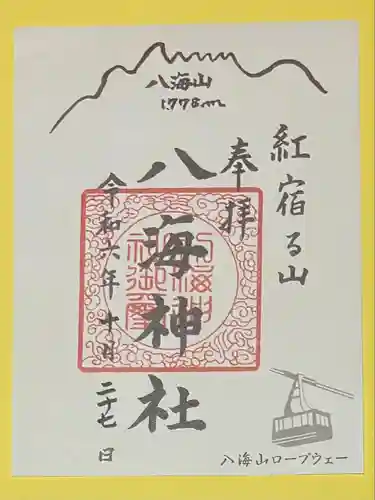 八海山
1778m
奉拝
紅宿る山
八海神社
令和六年十月二十七日
八海山ロープウェー